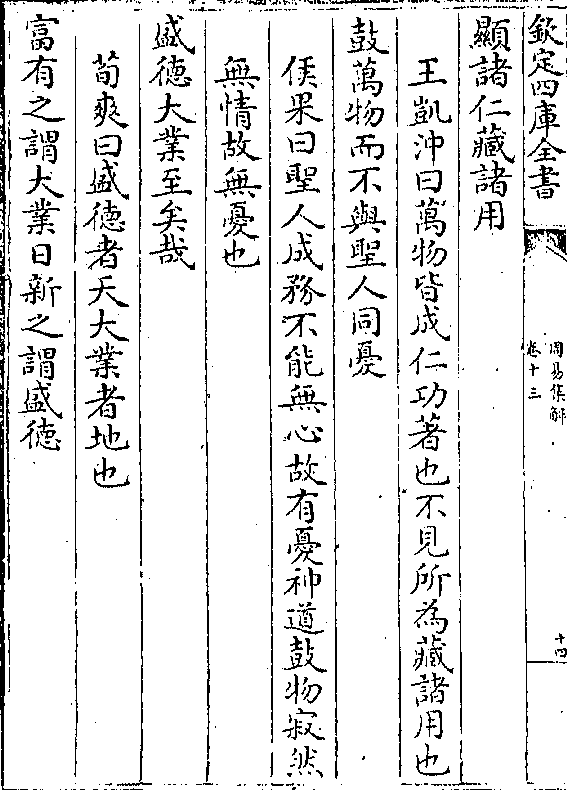 欽定四庫全書
周易集解
卷十三
十四
顯諸仁藏諸用
王凱沖曰萬物皆成仁功著也不見所為藏諸用也
鼓萬物而不與聖人同憂
侯果曰聖人成務不能無心故有憂神道鼓物寂然
無情故無憂也
盛德大業至矣哉
荀爽曰盛德者天大業者地也
富有之謂大業日新之謂盛德